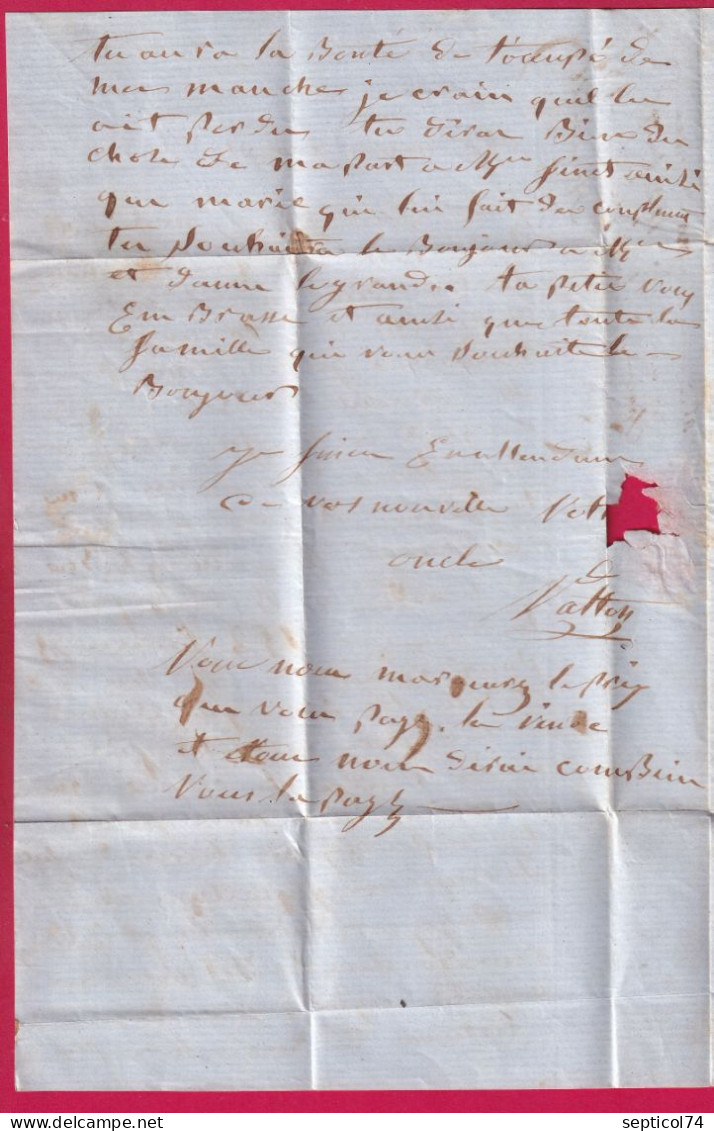 tu aura la Bonté de t'ocupé de
mes manches je crain quel les
ait perdu tu diras Bien des
chose de ma part a Mr ainsi
que marie qui lui fait des compliment
tu souhaitra le Bonjour a Mr
et danne legrand. ta petite vous
Em Brasse et ainsi que toute la
famille qui vous souhaite le
Bonjour
je finis En attendant
de vos nouvelles Vot
oncle
Vatton
Vous nous marquerez le prix
que vous payez la vinde
et vous nous dirai comBien
vous la payez
septicol74